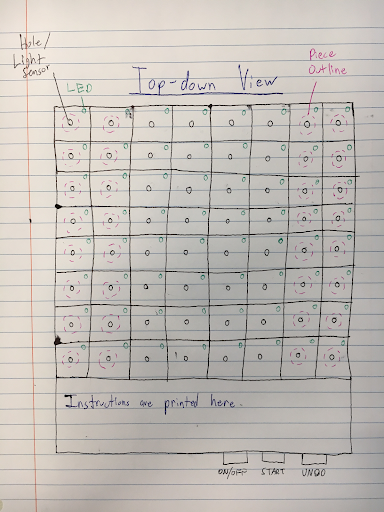 Hole/
Light
Sensor
LED
Top-down View
Piece
Outline
Instructions are printed here.
ON/OFF START UNDO